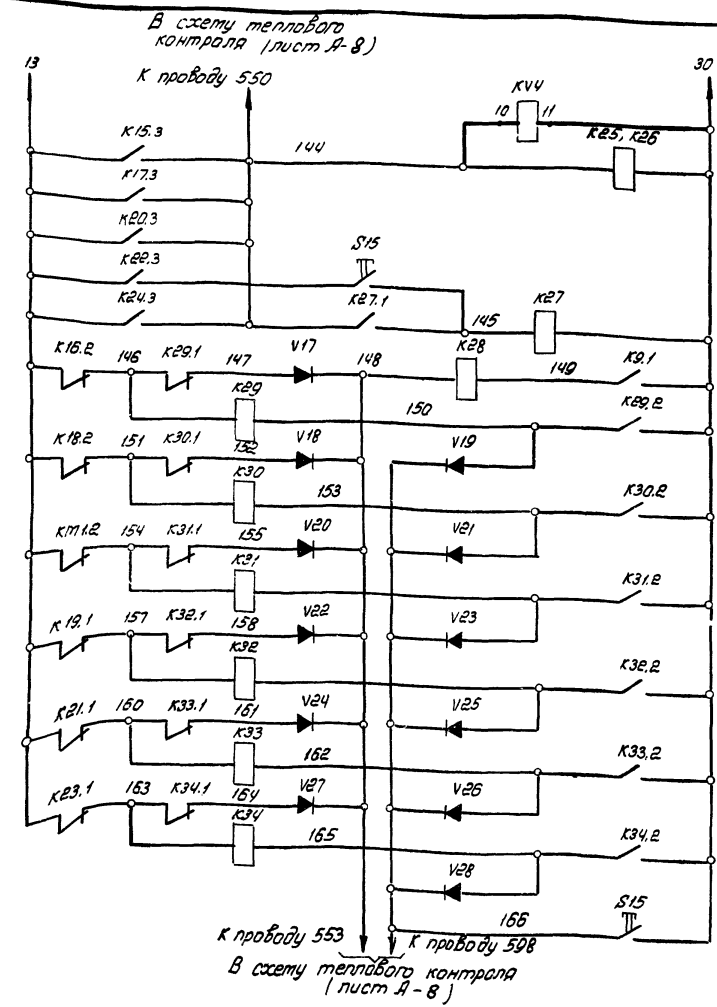 В схему теплового
контроля (лист А-8)
13
К проводу 550
30
KV4
10 11
К15.3
144
К25, К26
К17.3
К20.3
S15
К22.3
К24.3
К27.1
145
К27
К16.2
146
К29.1
147
V17
148
К28
149
К9.1
К29
150
К29.2
К18.2
151
К30.1
152
V18
V19
К30
153
К30.2
КМ1.2
154
К31.1
155
V20
V21
К31
К31.2
К19.1
157
К32.1
158
V22
V23
К32
К32.2
К21.1
160
К33.1
161
V24
V25
К33
162
К33.2
К23.1
163
К34.1
164
V27
V26
К34
165
К34.2
V28
S15
166
К проводу 553
К проводу 598
В схему теплового контроля
(лист А-8)